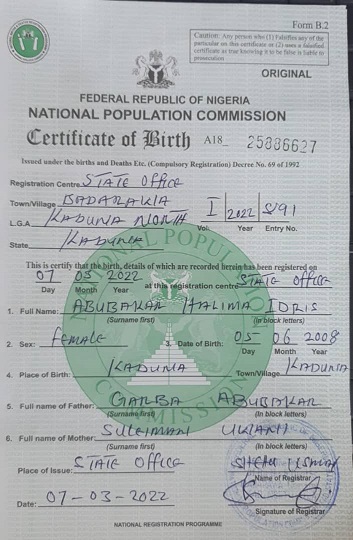 Form B.2
Caution: Any person who (1) Falsifies any of the
particular on this certificate or (2) uses a falsified
certificate as true knowing it to be false is liable to
prosecution
ORIGINAL
FEDERAL REPUBLIC OF NIGERIA
NATIONAL POPULATION COMMISSION
Certificate of Birth A18 25886627
Issued under the births and Deaths Etc. (Compulsory Registration) Decree No. 69 of 1992
Registration Centre STATE OFFICE
Town/Village BADARAWA
L.G.A KADUNA NORTH I 2022 5191
Vol: Year Entry No.
State KADUNA
This is certify that the birth, details of which are recorded herein has been registered on
07 03 2022 at this registration centre STATE OFFICE
Day Month Year
1. Full Name: ABUBAKAR HALIMA IDRIS
(Surname first) (in block letters)
2. Sex: FEMALE 3. Date of Birth: 05 06 2008
Day Month Year
4. Place of Birth: KADUNA Town/Village KADUNA
5. Full name of Father: GARBA ABUBAKAR
(Surname first) (In block letters)
6. Full name of Mother: SULEIMAN
(Surname first) (In block letters)
Place of Issue: STATE OFFICE SHEHU USMAN
Name of Registrar
Date: 07-03-2022
Signature of Registrar
NATIONAL REGISTRATION PROGRAMME